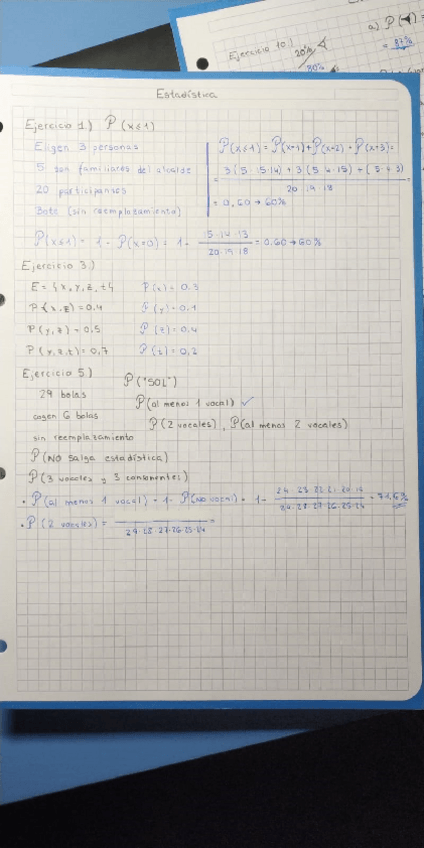 a) P(
Ejercicio 10)
20%
= 87%
80%
Estadística
Ejercicio 1) P(x≤1)
Eligen 3 personas
5 son familiares del alcalde
20 participantes
Bote (sin reemplazamiento)
P(x≤1) = P(x=1) + P(x=2) + P(x=3) =
= 3(5·15·14) + 3(5·4·15) + (5·4·3) =
20·19·18
= 0,60 → 60%
P(x≤1) = 1 - P(x=0) = 1 - 15·14·13 = 0.60 → 60%
20·19·18
Ejercicio 3)
E = {x, y, z, t} P(x) = 0.3
P(x,z) = 0.4 P(y) = 0.1
P(y,z) = 0,5 P(z) = 0,4
P(y,z,t) = 0,7 P(t) = 0,2
Ejercicio 5) P("SOL")
29 bolas P(al menos 1 vocal) ✓
cogen 6 bolas P(2 vocales), P(al menos 2 vocales)
sin reemplazamiento
P(NO salga estadística)
P(3 vocales y 3 consonantes)
• P(al menos 1 vocal) = 1 - P(NO vocal) = 1 - 24·23·22·21·20·19 = 71,6%
29·28·27·26·25·24
• P(2 vocales) = =
29·28·27·26·25·24